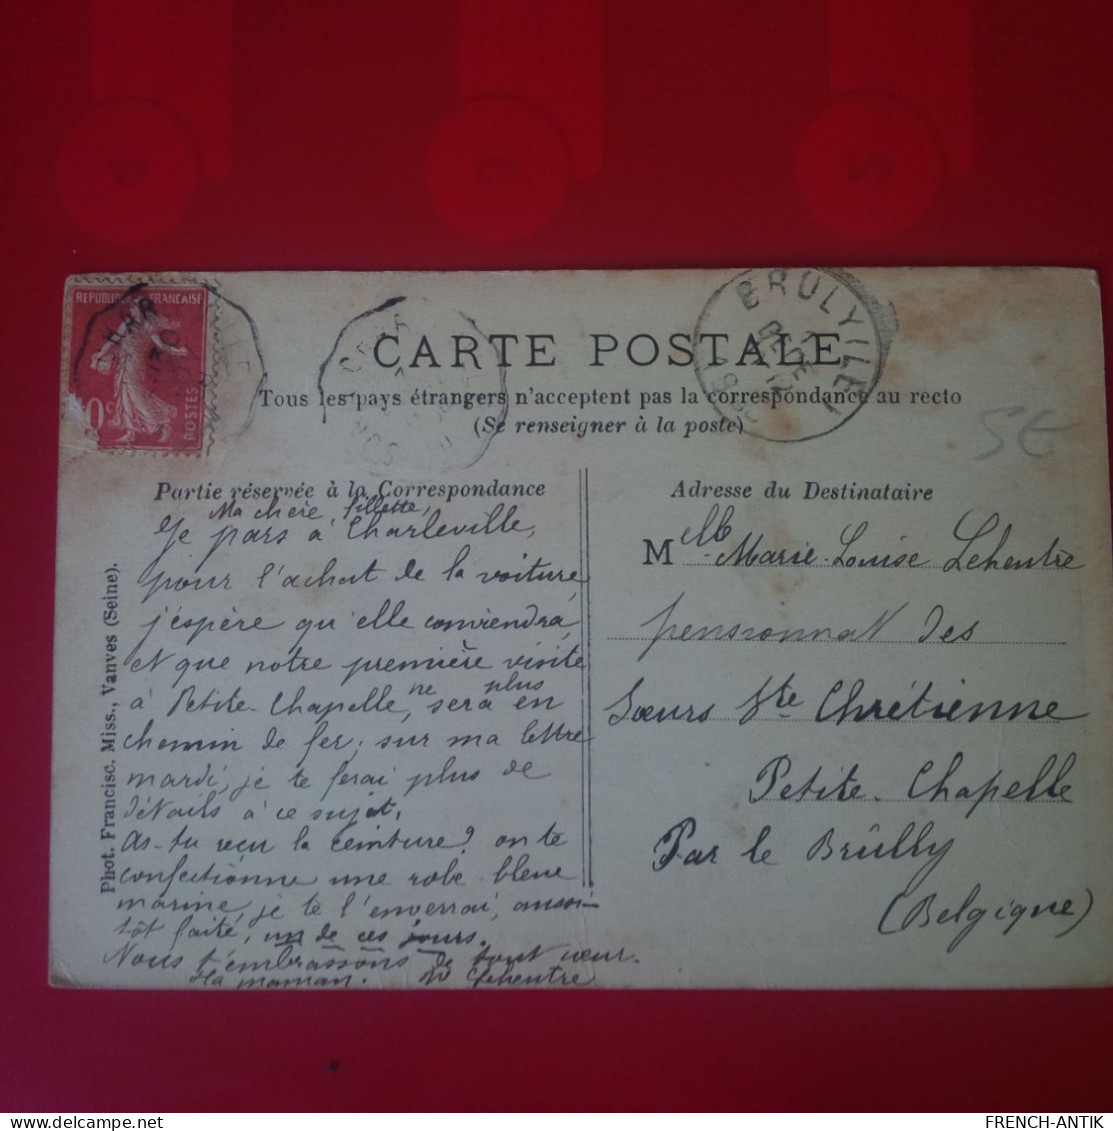 REPUBLIQUE FRANÇAISE
10c
POSTES
BRULY
CARTE POSTALE
Tous les pays étrangers n'acceptent pas la correspondance au recto
(Se renseigner à la poste)
SE
Partie réservée à la Correspondance
Ma chère fillette,
Je pars à Charleville,
pour l'achat de la voiture
j'espère qu'elle conviendra,
et que notre première visite
à Petite-Chapelle, ne sera plus en
chemin de fer, sur ma lettre
mardi, je te ferai plus de
détails à ce sujet.
As-tu reçu la ceinture? on te
confectionne une robe bleue
marine, je te l'enverrai, aussi-
tôt faite, un de ces jours.
Nous t'embrassons de tout cœur.
Ta maman. Lehentre
Phot. Francisc. Miss., Vanves (Seine).
Adresse du Destinataire
Melle Marie-Louise Lehentre
pensionnat des
Sœurs Ste Chrétienne
Petite-Chapelle
Par le Brûlly
(Belgique)
FRENCH-ANTIK